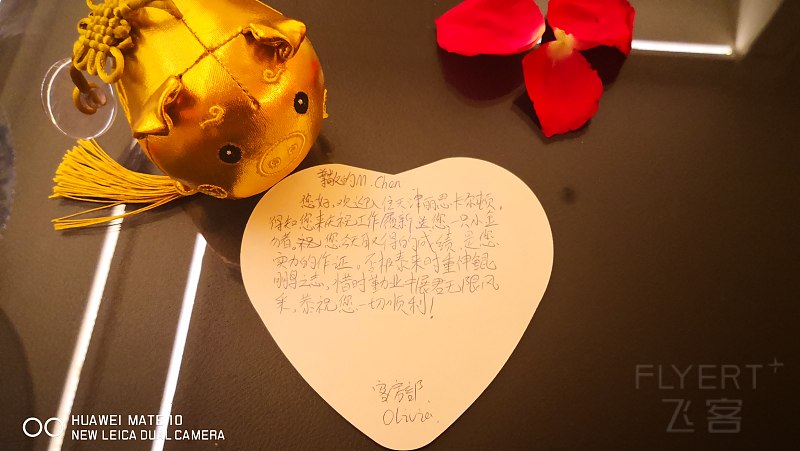 敬的M. Chen
您好,欢迎入住天津丽思卡尔顿,
得知您来庆祝工作履新送您一只小金
猪。祝您今日取得的成绩是您
实力的作证。否极泰来时重伸鲲
鹏得之志,惜时事业丰展君无限风
采,恭祝您一切顺利!
客房部
Olivia
FLYERT+
飞客
HUAWEI MATE 10
NEW LEICA DUAL CAMERA